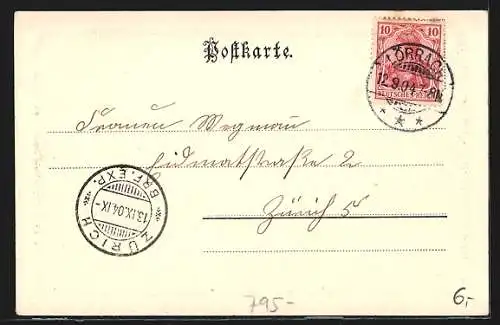 Postkarte.
10 10
DEUTSCHES REICH
LÖRRACH
12.9.04. 8-9N.
Frauen Wegmann
Südmatstraße 2
Zürich 5
ZÜRICH
13.IX.04.IX-
BRF. EXP.
795-
6.-